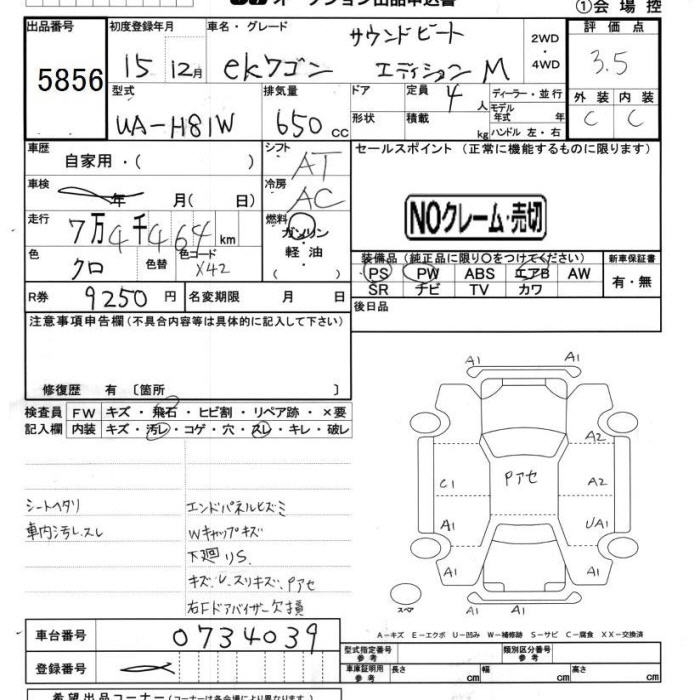 オークション出品申込書
①会場控
出品番号 5856
初度登録年月 15 12月
車名・グレード ekワゴン サウンドビート エディション M
2WD・4WD
評価点 3.5
外装 C 内装 C
型式 UA-H81W
排気量 650 cc
ドア 形状
定員 4 人
積載 kg
ディーラー・並行
モデル年式 年
ハンドル 左・右
車歴 自家用・( )
シフト AT
セールスポイント (正常に機能するものに限ります)
車検 年 月( 日)
冷房 AC
NOクレーム・売切
走行 7万4千464km
燃料 ガソリン・軽油 ( )
色 クロ 色替 色コード X42
装備品 (純正品に限り○をつけてください)
新車保証書
PS PW ABS エアB AW
SR ナビ TV カワ
有・無
R券 9250 円
名変期限 月 日
後日品
注意事項申告欄 (不具合内容等は具体的に記入して下さい)
修復歴 有 〔箇所 〕
検査員記入欄
FW キズ・飛石・ヒビ割・リペア跡・×要
内装 キズ・汚レ・コゲ・穴・スレ・キレ・破レ
シートヘタリ
車内汚レ、スレ
エンドパネルヒズミ
Wキャップキズ
下廻りS.
キズ、U、スリキズ、Pアセ
右Fドアバイザー欠損
A1
A1
A1
A1
A2
Pアセ
C1
A2
A1
UA1
A1
A1
スペア
A-キズ E-エクボ U-凹み W-補修跡 S-サビ C-腐食 XX-交換済
車台番号 0734039
登録番号
型式指定番号 参考
類別区分番号 参考
車庫証明用 参考 長さ cm 幅 cm 高さ cm
希望出品コーナー (コーナーは各会場により異なります)